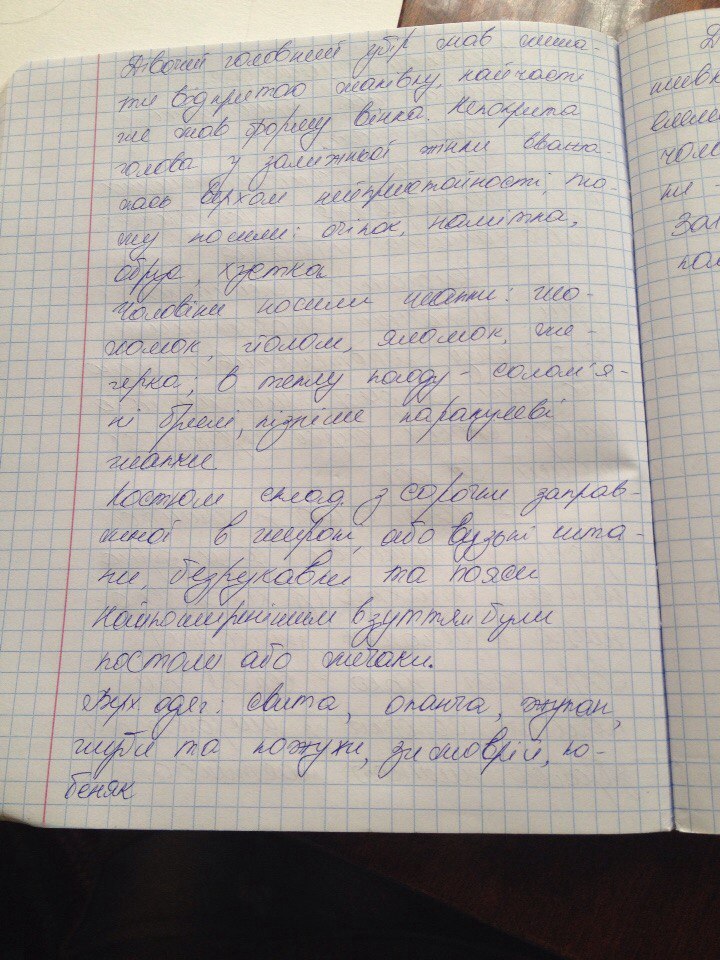 Дівочий головний убір мав лиша-
ти відкритою маківку, найчасті
ше мав форму вінка. Непокрита
голова у заміжньої жінки вважа-
лась верхом непристойності, то-
му носили: очіпок, намітка,
обрус, хустка
Чоловіки носили шапки: шо-
ломок, йолом, яломок, ме-
герка; в теплу погоду - солом'я-
ні брилі, пізніше каракулеві
шапки
Костюм склад. з сорочки заправ-
леної в широкі, або вузькі шта-
ни, безрукавки та пояси
Найпоширенішим взуттям були
постоли або личаки.
Верх. одяг: свита, опанча, жупан,
шуби та кожухи, зимоврій, ко-
беняк
Д
чолов
ки
Зал
пол